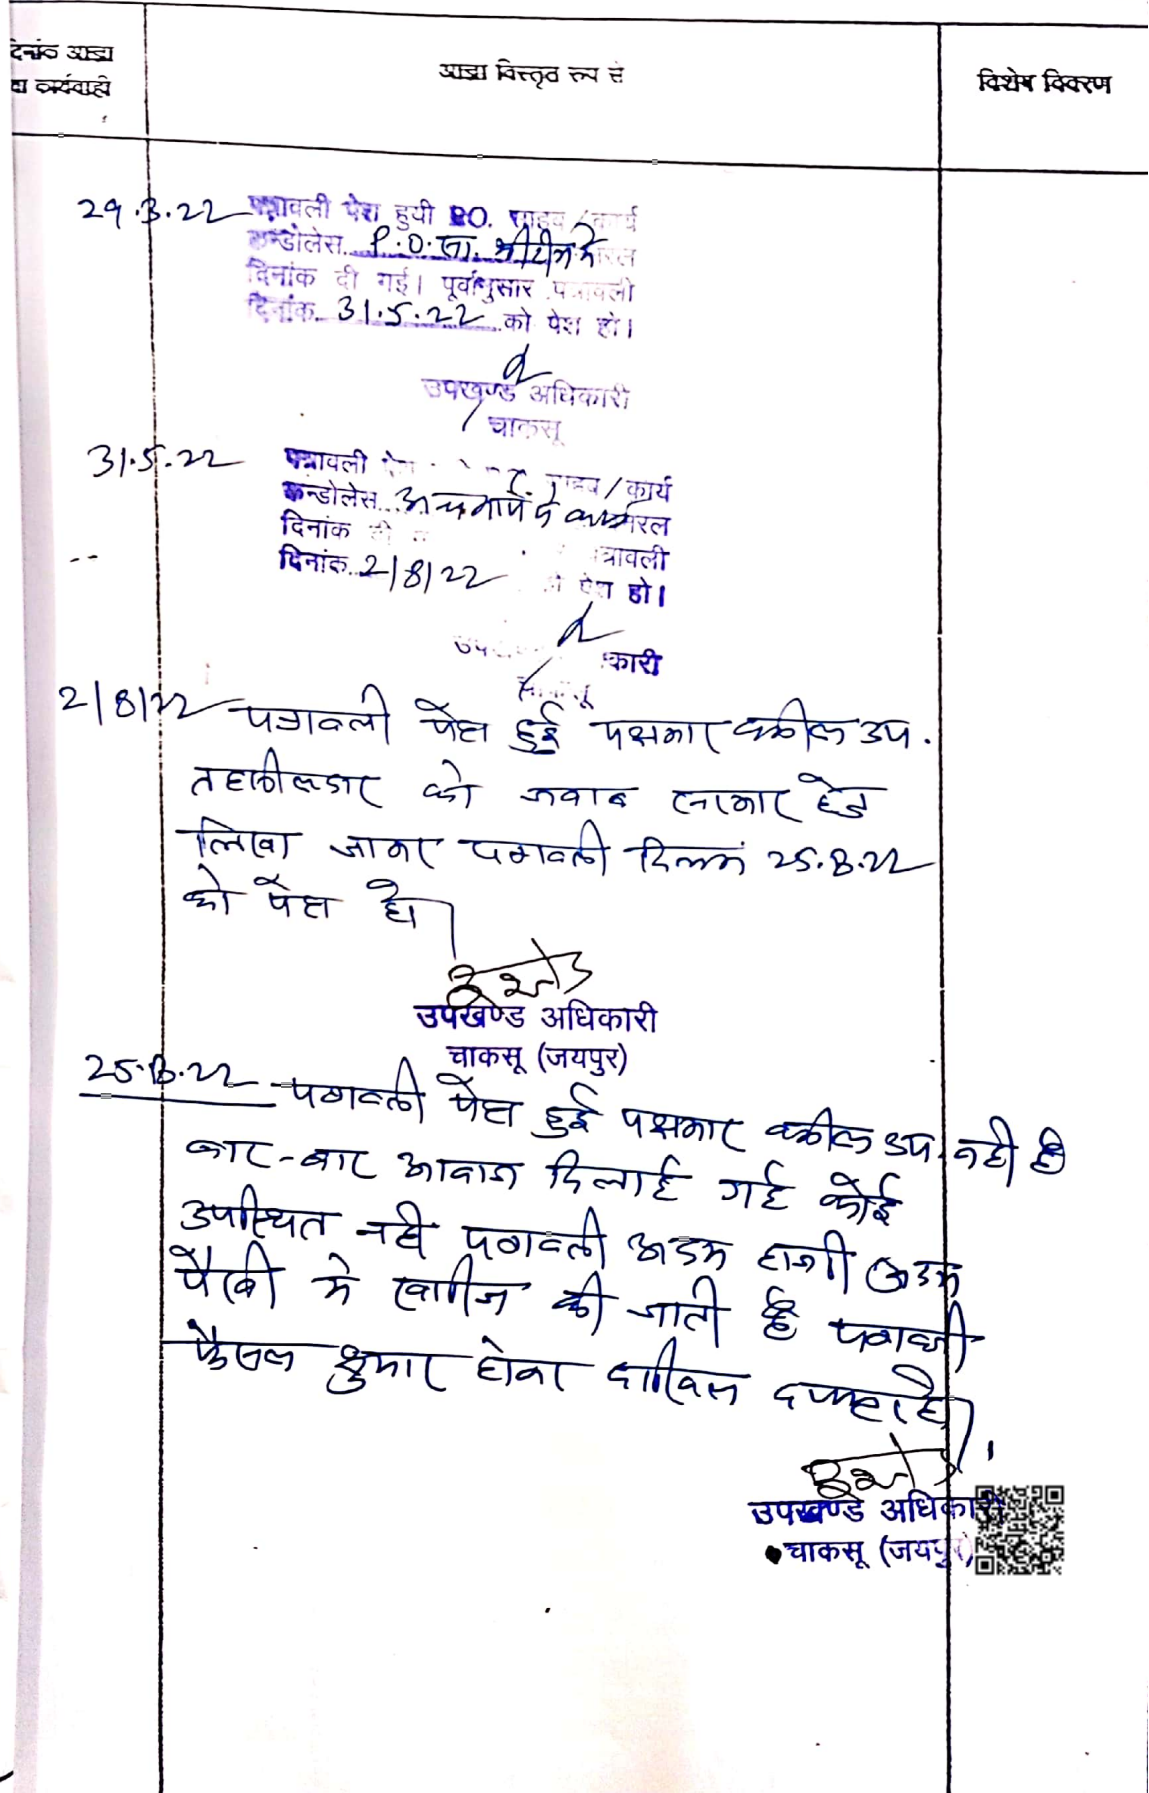 दिनांक आज्ञा
या कार्यवाही
आज्ञा विस्तृत रूप से
विशेष विवरण
29.3.22 पत्रावली पेश हुयी P.O. साहब / कार्य
कन्डोलेस P.O. सा.
दिनांक दी गई। पूर्वानुसार पत्रावली
दिनांक 31.5.22 को पेश हो।
उपखण्ड अधिकारी
चाकसू
31.5.22 पत्रावली पेश साहब / कार्य
कन्डोलेस अन्य कार्य में
दिनांक दी पत्रावली
दिनांक 2/8/22 को पेश हो।
उपखण्ड अधिकारी
चाकसू
2/8/22 पत्रावली पेश हुई पक्षकार वकील उप.
तहसीलदार को जवाब सरकार हेतु
लिखा जाकर पत्रावली दिनांक 25.8.22
को पेश हो।
उपखण्ड अधिकारी
चाकसू (जयपुर)
25.8.22 पत्रावली पेश हुई पक्षकार वकील उप. नही है
बार-बार आवाज दिलाई गई कोई
उपस्थित नही पत्रावली अदम हाजरी अदम
पैरवी मे खारीज की जाती है पत्रावली
फैसल शुमार होकर दाखिल दफ्तर हो।
उपखण्ड अधिकारी
चाकसू (जयपुर)